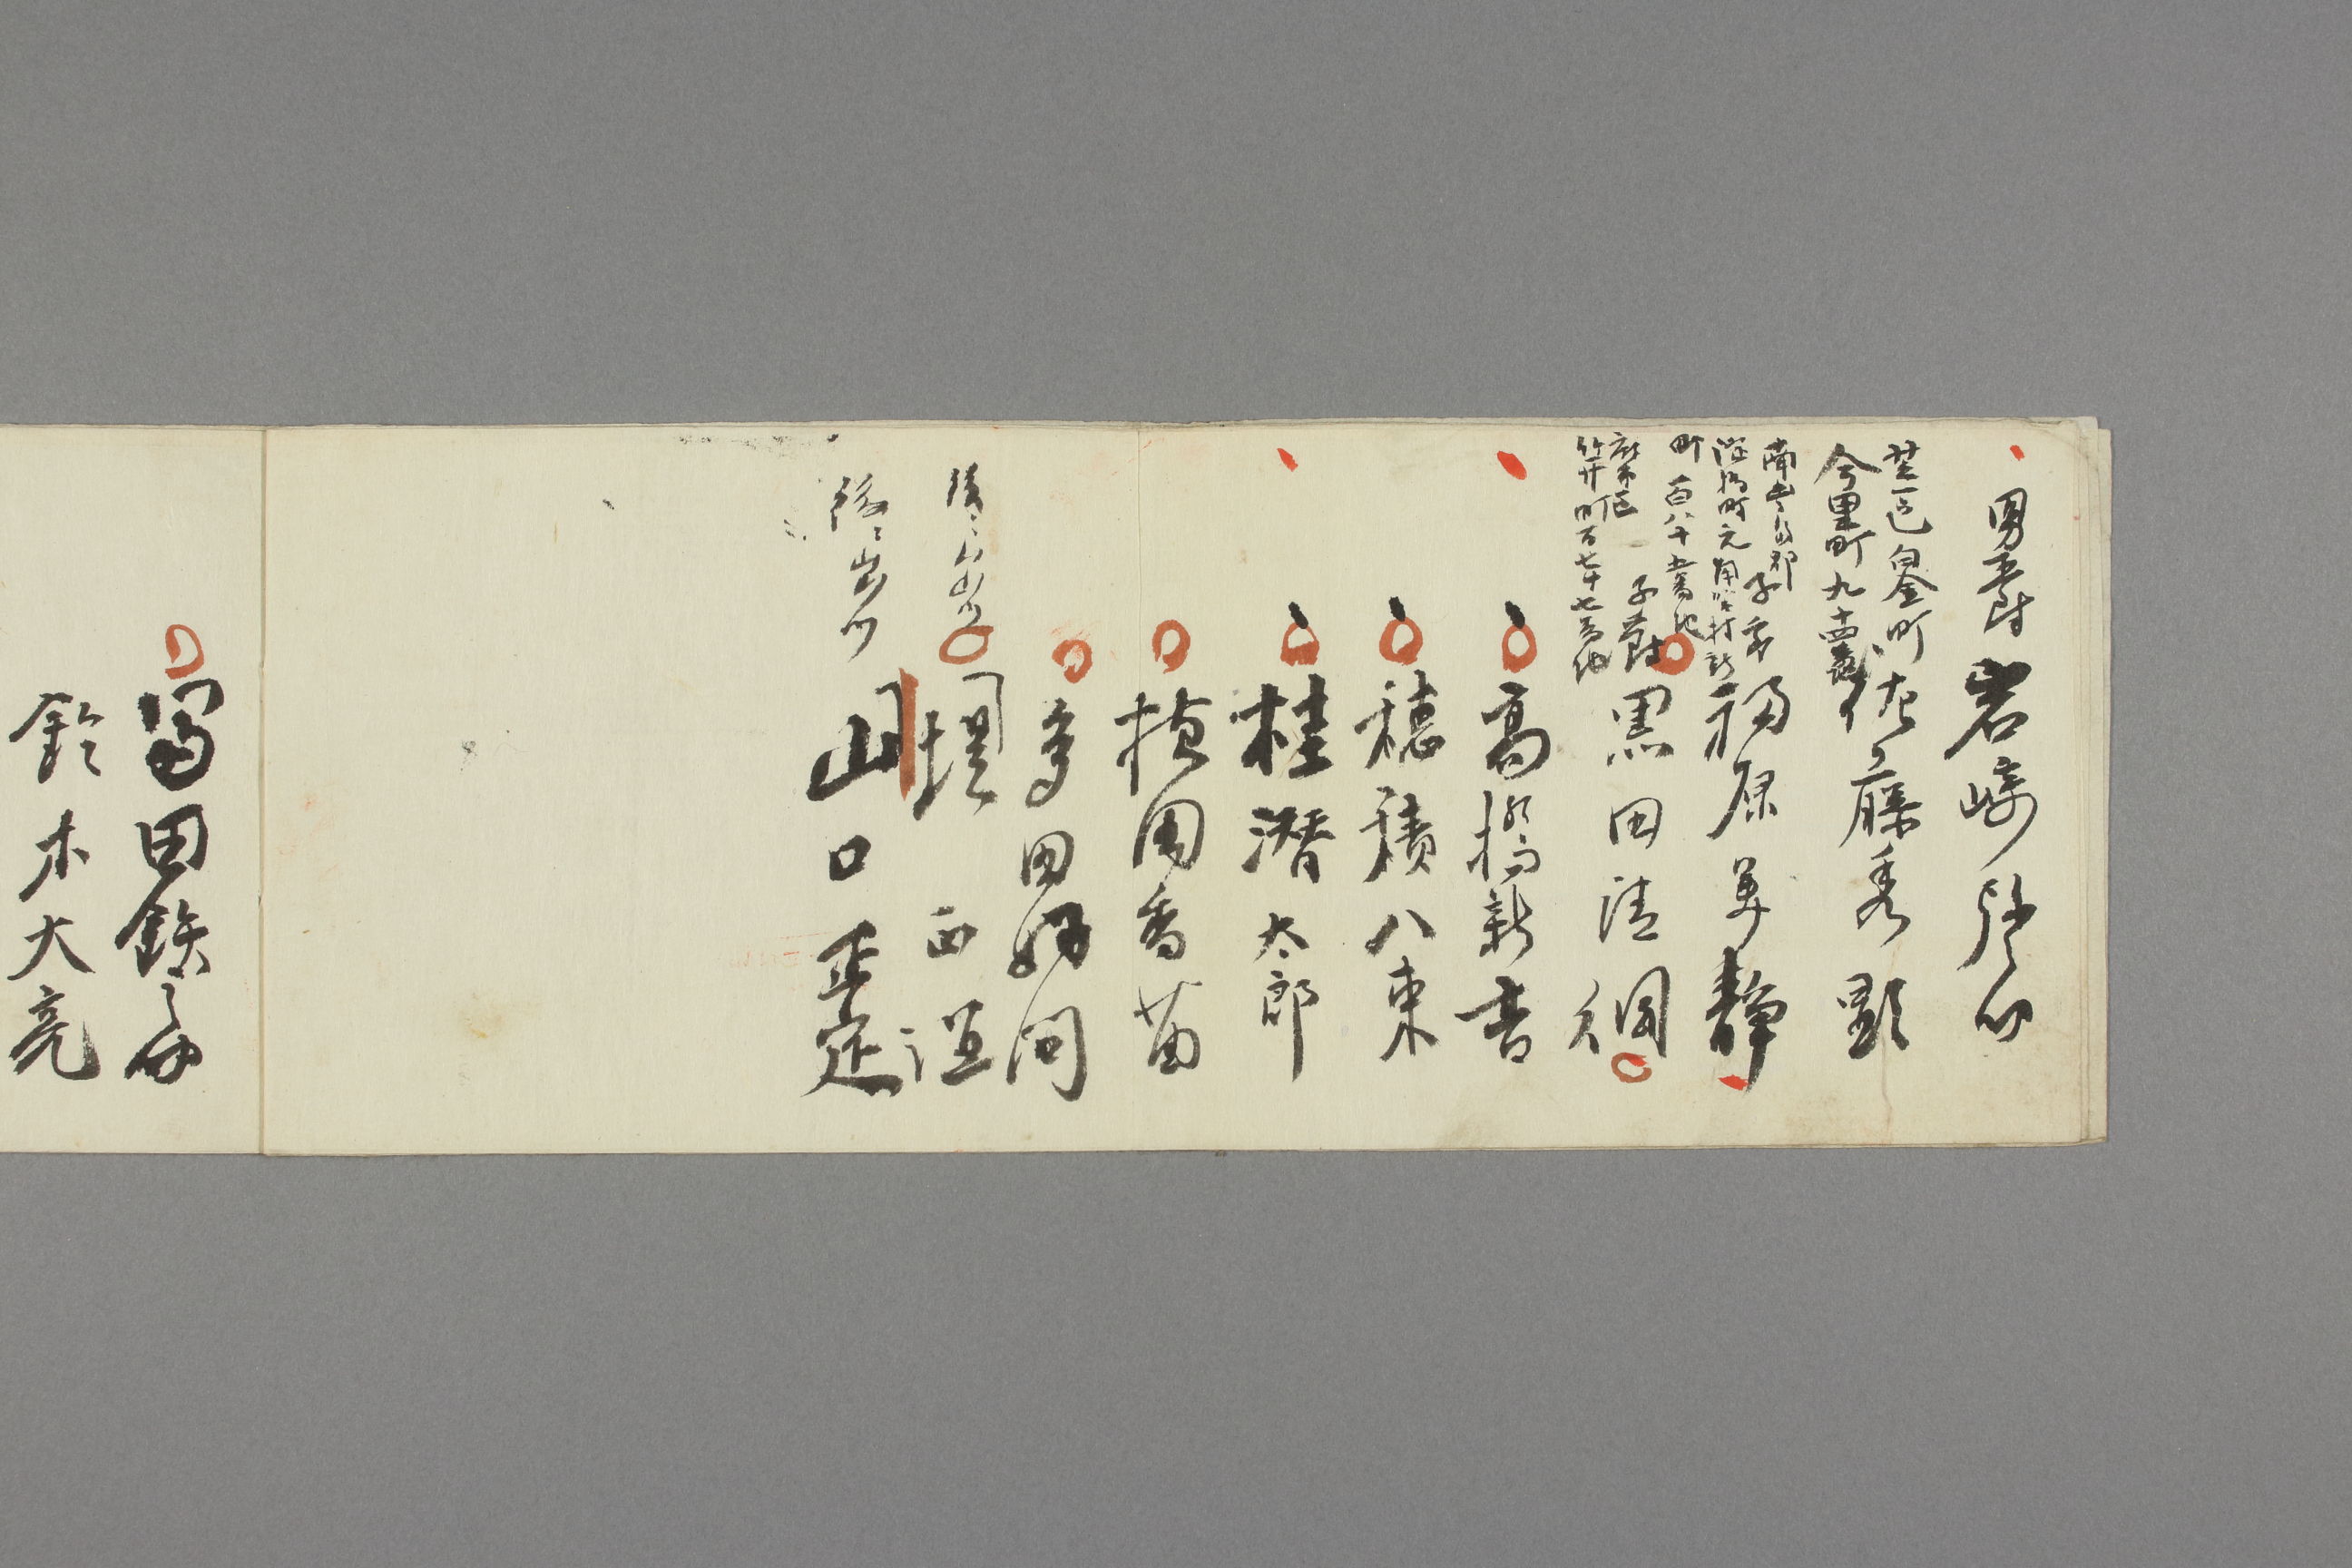 男爵 岩崎弥之助
芝区白金町
今里町九十四番
佐藤秀顕
南豊島郡
淀橋町元角筈村新
町百八十五番地
子爵 福原 静
麻布区
笄町百七十七番地
子爵 黒田清綱
高橋新吉
穂積八束
桂潜太郎
植田香苗
多田好問
堀 正
山口正定
富田鉄之助
鈴木大亮